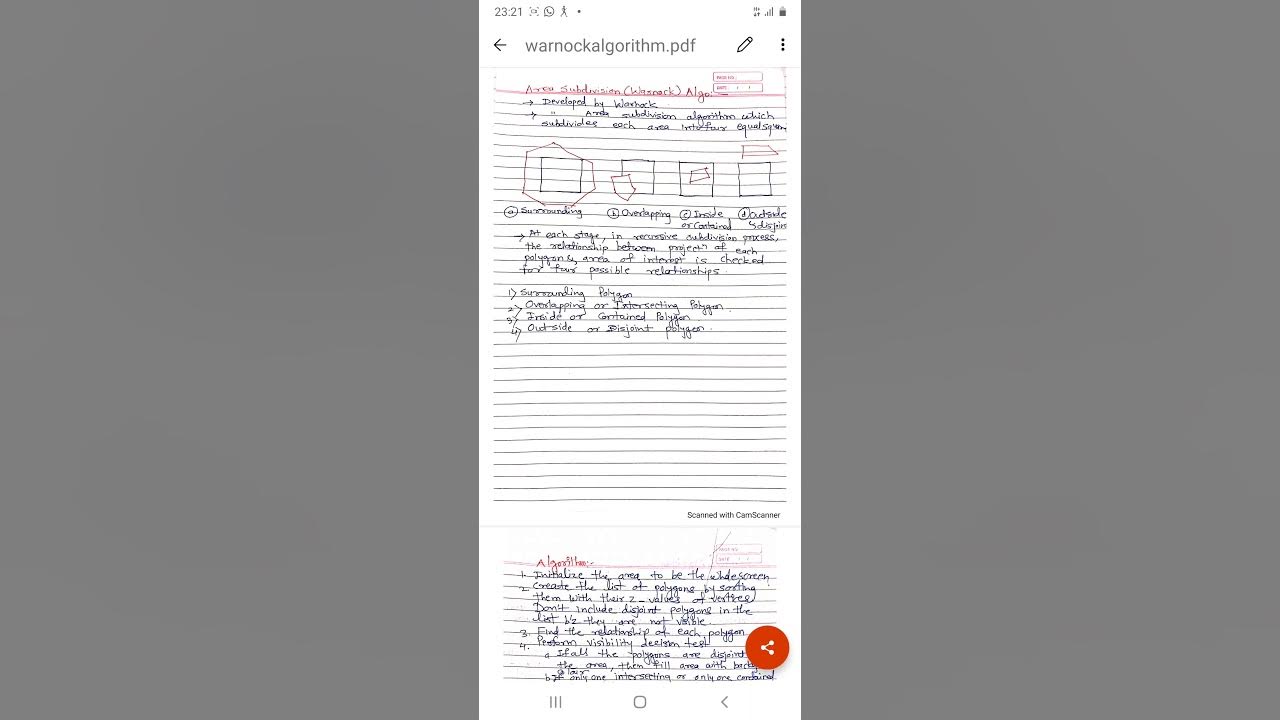 23:21
warnockalgorithm.pdf
PAGE NO:
DATE: / /
Area Subdivision (Warnock) Algo:-
→ Developed by Warnock.
→ " Area subdivision algorithm which
subdivides each area into four equal squares
(a) Surrounding (b) Overlapping (c) Inside (d) Outside
or Contained disjoint
→ At each stage in recursive subdivision process,
the relationship between projectn of each
polygon & area of interest is checked
for four possible relationships.
1) Surrounding Polygon
2) Overlapping or Intersecting Polygon.
3) Inside or Contained Polygon
4) Outside or Disjoint polygon.
Scanned with CamScanner
PAGE NO:
DATE: / /
Algorithm:-
1. Initialize the area to be the whole screen
2. Create the list of polygons by sorting
them with their z-values of vertices
Don't include disjoint polygons in the
list b'z they are not visible
3. Find the relationship of each polygon
4. Perform visibility decision test
a. If all the polygons are disjoint
the area, then fill area with
b) If only one intersecting or only one contained